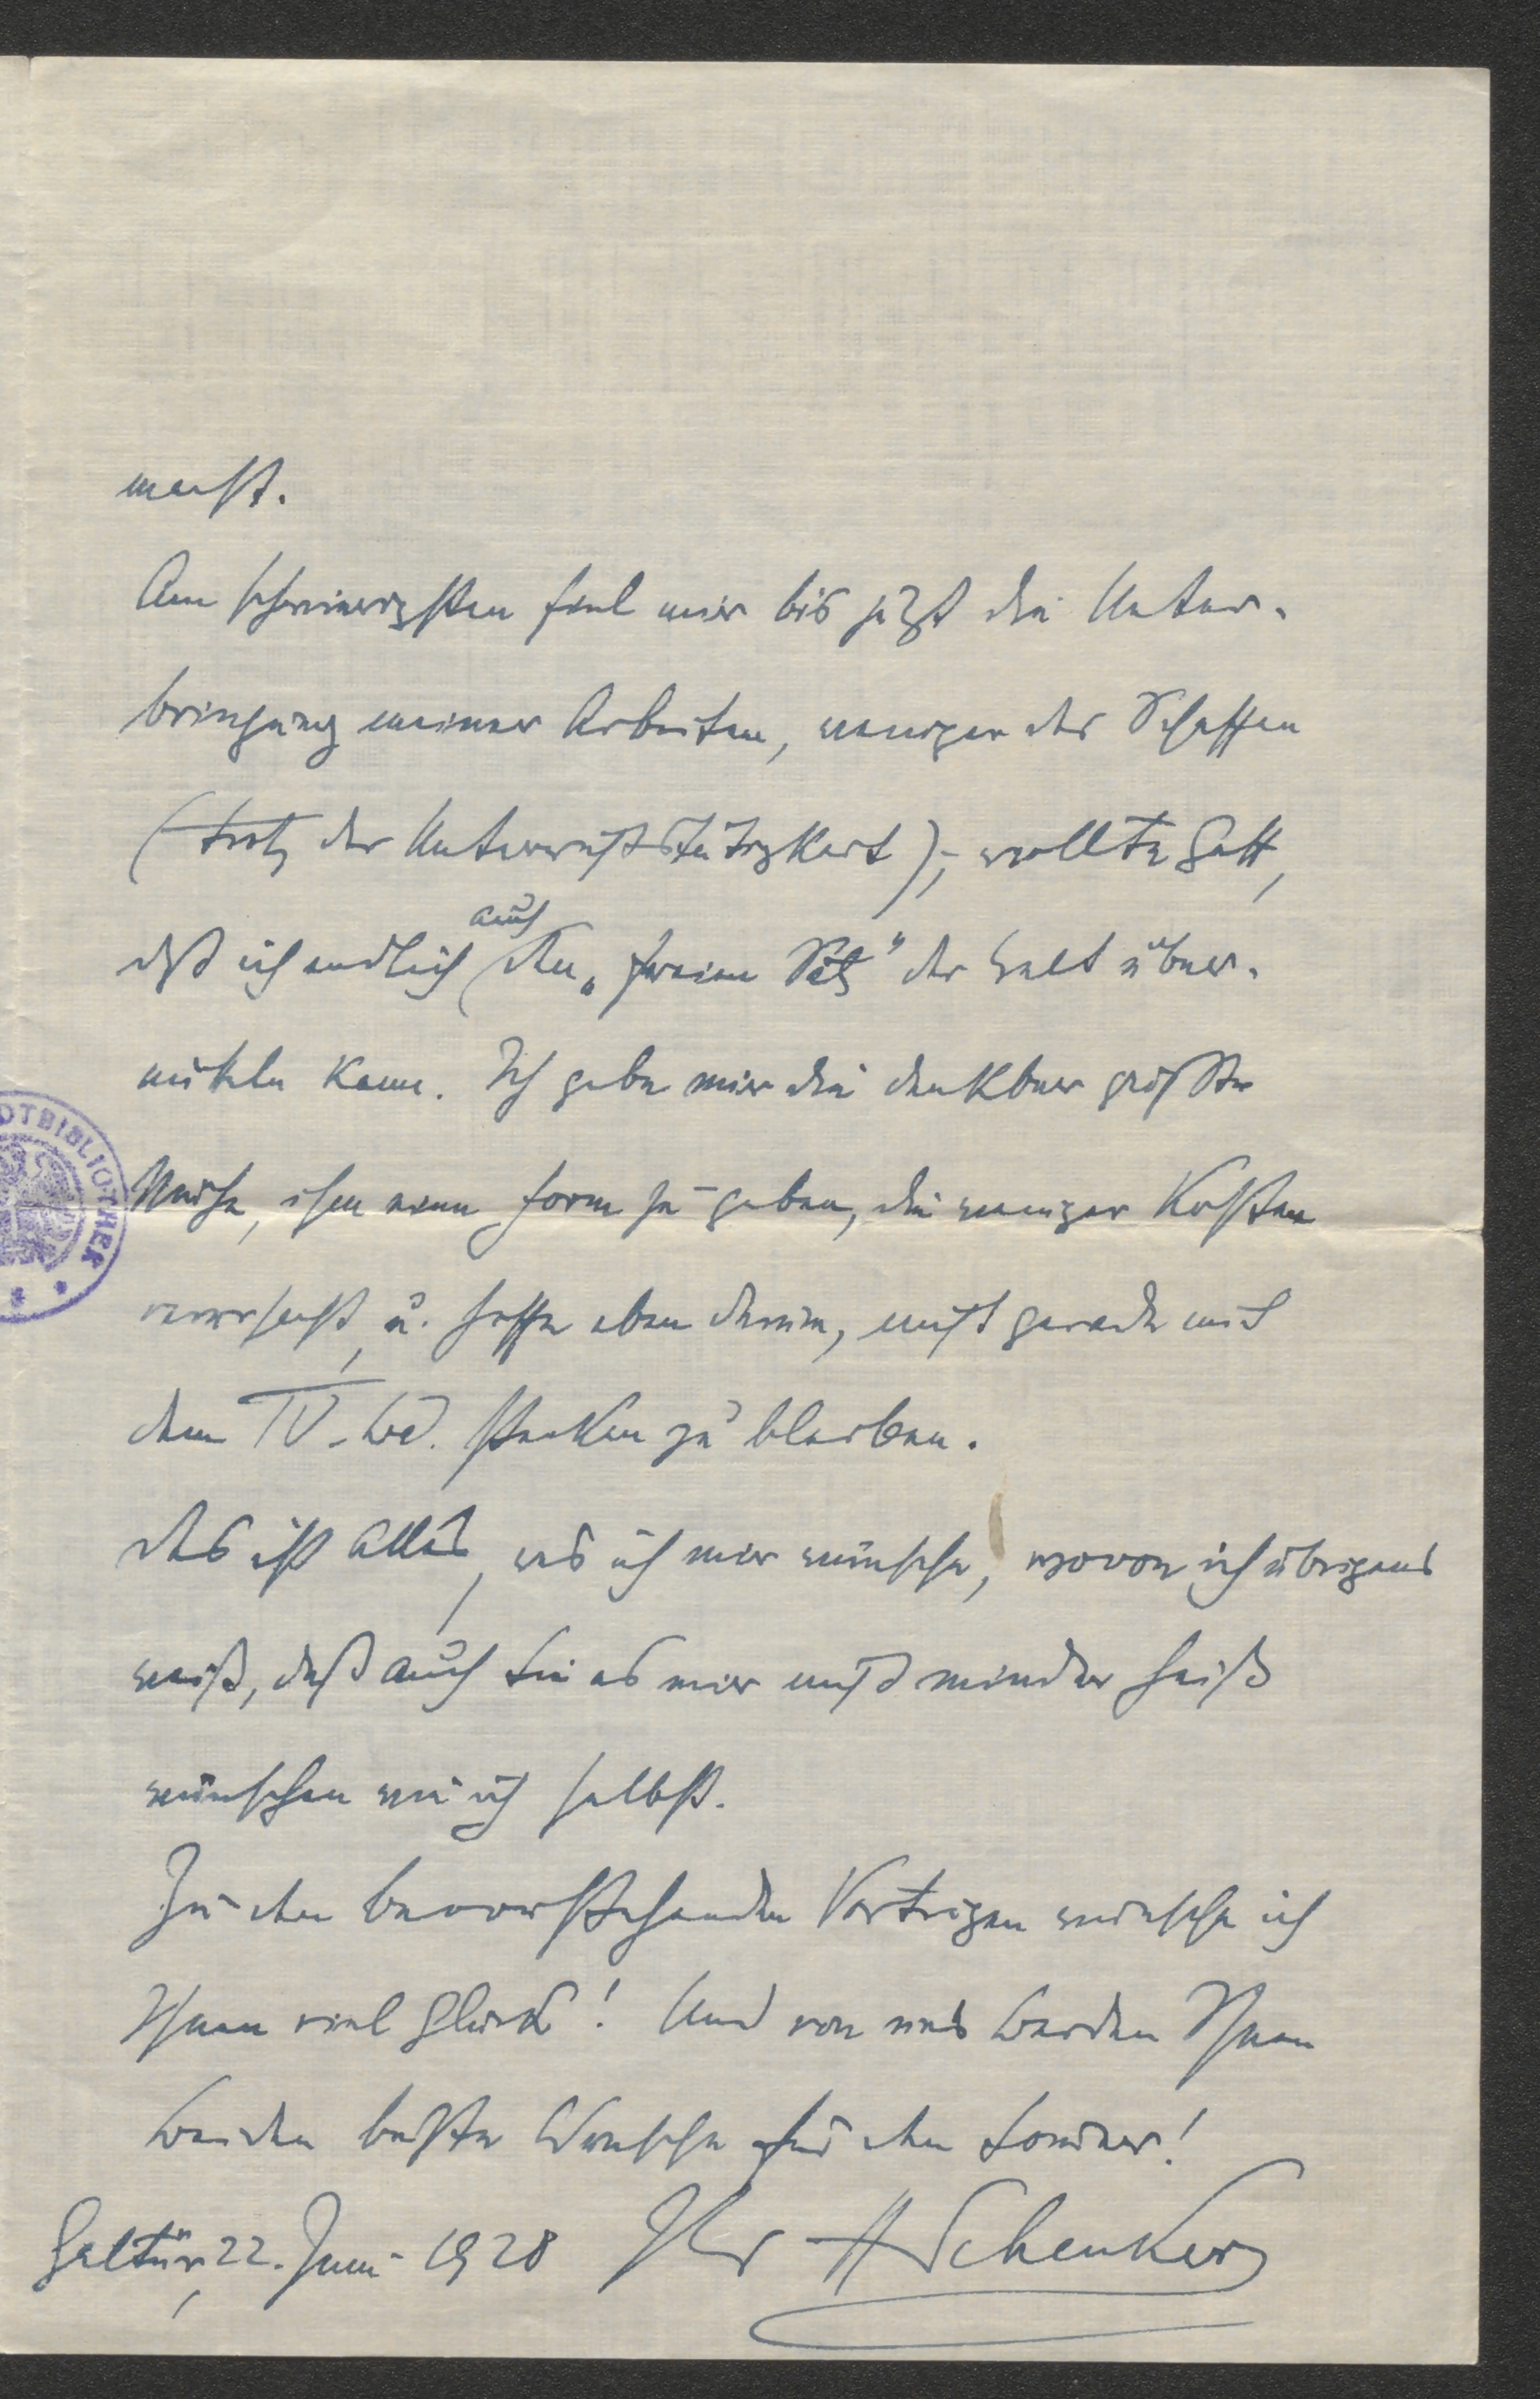 macht.
Am schwierigsten fiel mir bis jetzt die Unter-
bringung meiner Arbeiten, weniger das Schaffen
(trotz der Unterrichtstätigkeit); wollte Gott,
daß ich endlich auch den „freien Satz“ der Welt über-
mitteln kann. Ich gebe mir die denkbar größte
Mühe, ihm eine Form zu geben, die weniger Kosten
verursacht, u. hoffe eben darum, nicht gerade mit
dem IV. Bd. stecken zu bleiben.
Das ist alles, was ich mir wünsche, wovon ich übrigens
weiß, daß auch Sie es mir nicht minder heiß
wünschen wie ich selbst.
Zu den bevorstehenden Vorträgen wünsche ich
Ihnen viel Glück! Und von uns beiden Ihnen
beiden beste Wünsche für den Sommer!
Galtür, 22. Juni 1928 Ihr HSchenker
DTBIBLIOTHEK